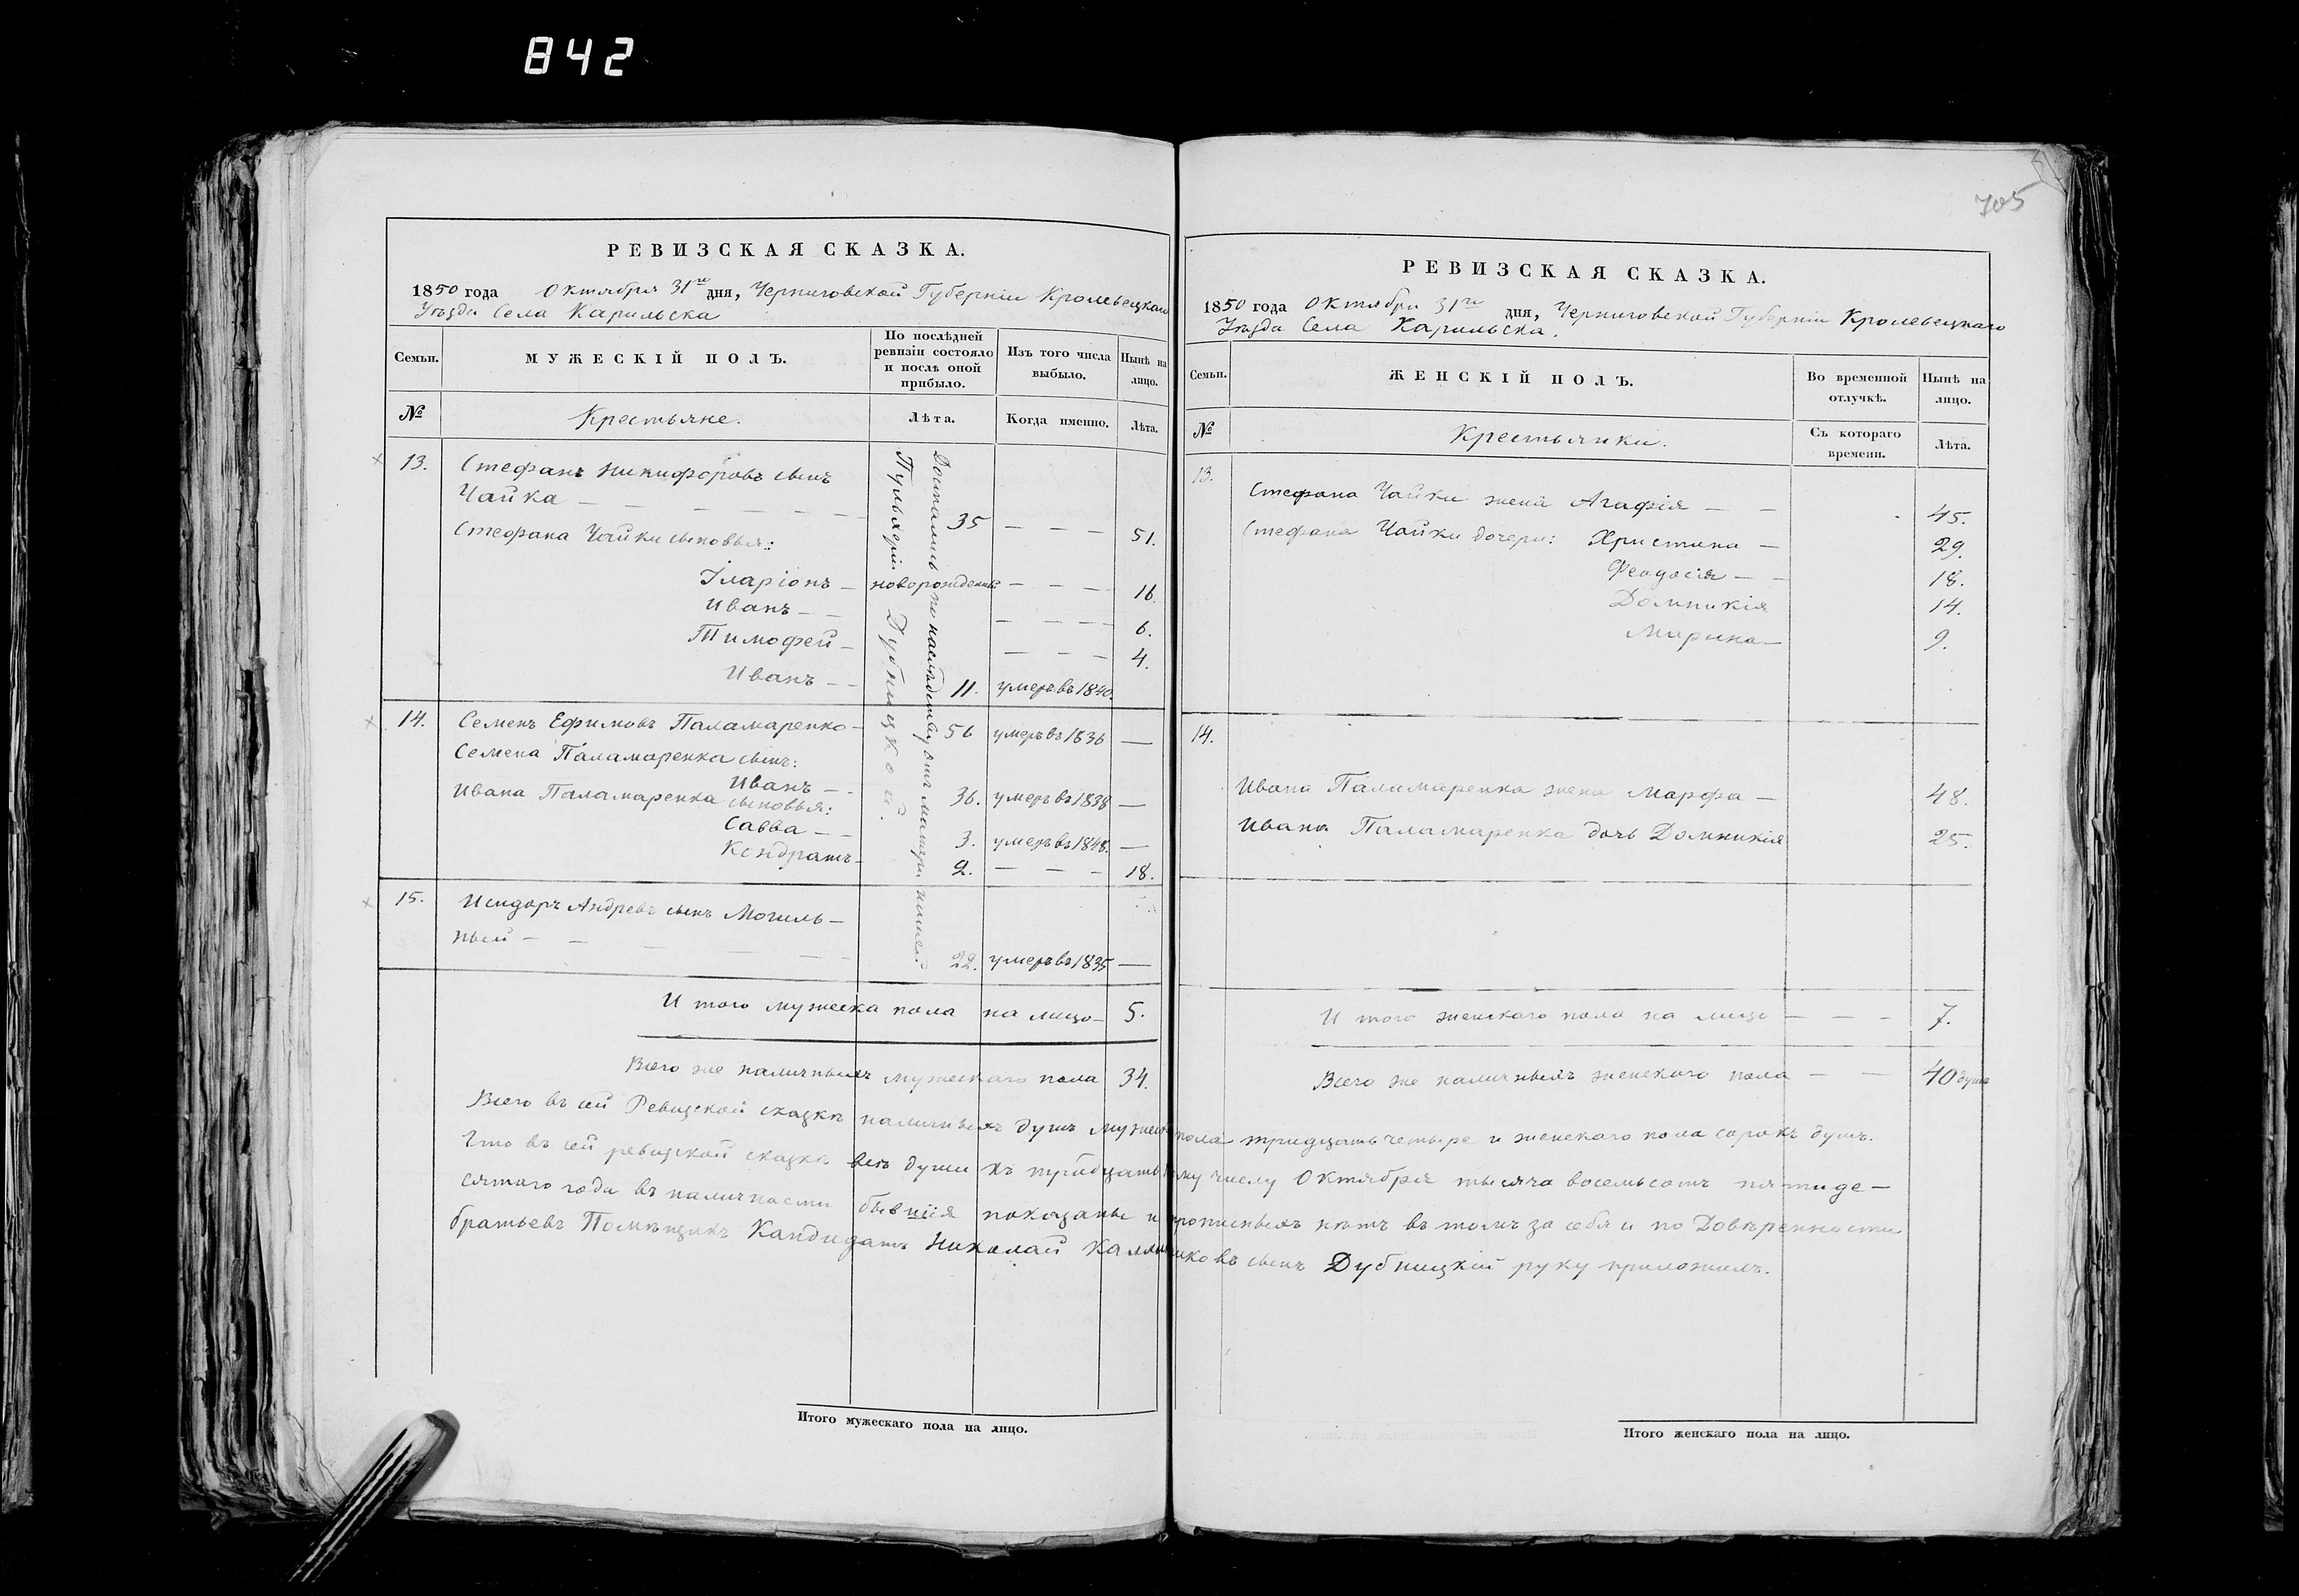 842
705
РЕВИЗСКАЯ СКАЗКА.
1850 года Октября 31го дня, Черниговской Губерніи Кролевецкаго
Уѣзда Села Карильска
Семьи.
МУЖЕСКІЙ ПОЛЪ.
По послѣдней ревизіи состояло и послѣ оной прибыло.
Изъ того числа выбыло.
Нынѣ на лицо.
№
Крестьяне.
Лѣта.
Когда именно.
Лѣта.
Достались по наслѣдству отъ матери нашей
Пульхеріи Дубницкой.
13. Стефанъ Никифоровъ сынъ
Чайка — 35 — 51.
Стефана Чайки сыновья:
Іларіонъ — новорожденный — 16.
Иванъ — — 6.
Тимофей — — 4.
Иванъ — 11. умеръ въ 1840.
14. Семенъ Ефимовъ Паламаренко — 56 умеръ въ 1836 —
Семена Паламаренка сынъ:
Иванъ — 36. умеръ въ 1838 —
Ивана Паламаренка сыновья:
Савва — 3. умеръ въ 1848. —
Кондратъ — 2. — 18.
15. Исидоръ Андреевъ сынъ Могиль-
ный — 22. умеръ въ 1835 —
И того мужеска пола на лицо — 5.
Всего же наличныхъ мужескаго пола 34.
РЕВИЗСКАЯ СКАЗКА.
1850 года Октября 31го дня, Черниговской Губерніи Кролевецкаго
Уѣзда Села Карильска.
Семьи.
ЖЕНСКІЙ ПОЛЪ.
Во временной отлучкѣ.
Нынѣ на лицо.
№
Крестьянки.
Съ котораго времени.
Лѣта.
13.
Стефана Чайки жена Агафія — 45.
Стефана Чайки дочери: Христина — 29.
Феодосія — 18.
Домникія 14.
Марина — 9.
14.
Ивана Паламаренка жена Марфа — 48.
Ивана Паламаренка дочь Домникія 25.
И того женскаго пола на лицо — 7.
Всего же наличныхъ женскаго пола — 40 душъ
Всего въ сей Ревизской сказкѣ наличныхъ душъ мужеска пола тридцать четыре и женскаго пола сорокъ душъ.
Что въ сей ревизской сказкѣ всѣ души къ тридцать числу Октября тысяча восемьсотъ пятиде-
сятаго года въ наличности бывшія показаны и прописныхъ нѣтъ въ томъ за себя и по Довѣренности
братьевъ Помѣщикъ Кандидатъ Николай сынъ Дубницкій руку приложилъ.
Итого мужескаго пола на лицо.
Итого женскаго пола на лицо.